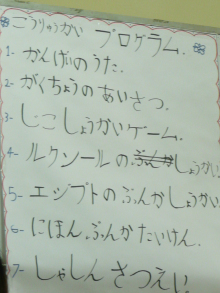 こうりゅうかい プログラム.
1- かんげいのうた.
2- がくちょうの あいさつ.
3- じこ しょうかいゲーム.
4- ルクソールの ぶんか しょうかい
5- エジプトの ぶんか しょうかい
6- にほん.ぶんか たいけん.
7- しゃしん さつえい